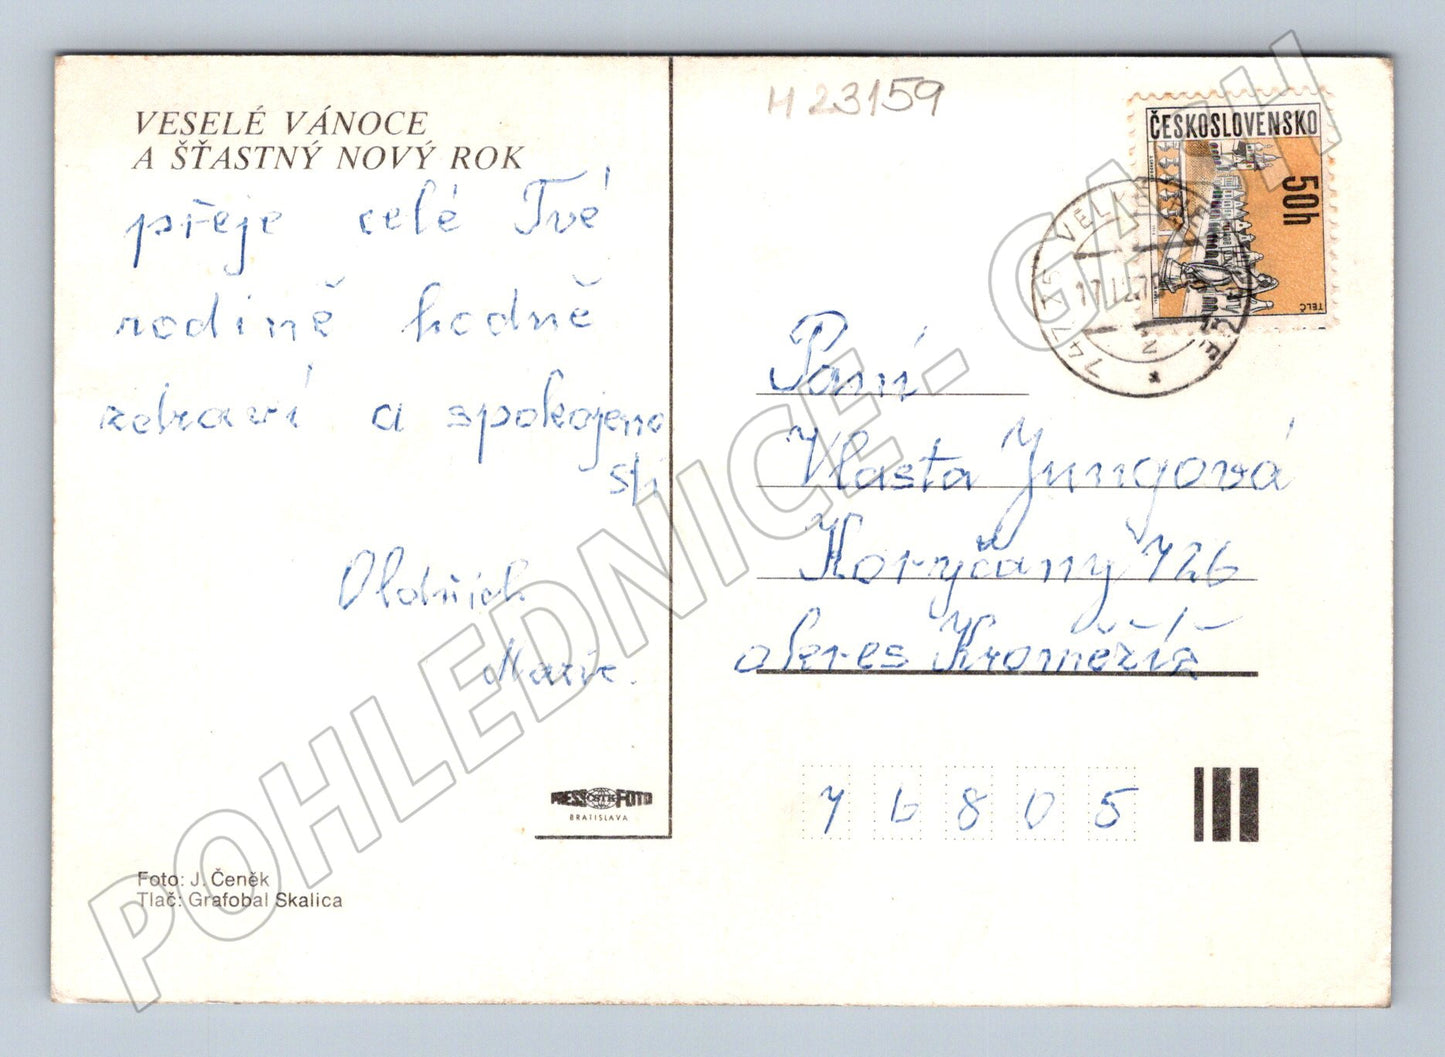 VESELÉ VÁNOCE
A ŠŤASTNÝ NOVÝ ROK
přeje celé Tvé
rodině hodně
zdraví a spokojeno
sti
Oldřich
Marie.
PRESSFOTO
ČSTK
BRATISLAVA
Foto: J. Čeněk
Tlač: Grafobal Skalica
H 23159
ČESKOSLOVENSKO
50h
TELČ
747 35
2
Paní
Vlasta Jungová
Koryčany 726
okres Kroměříž
7 6 8 0 5
POHLEDNICE - GAAH